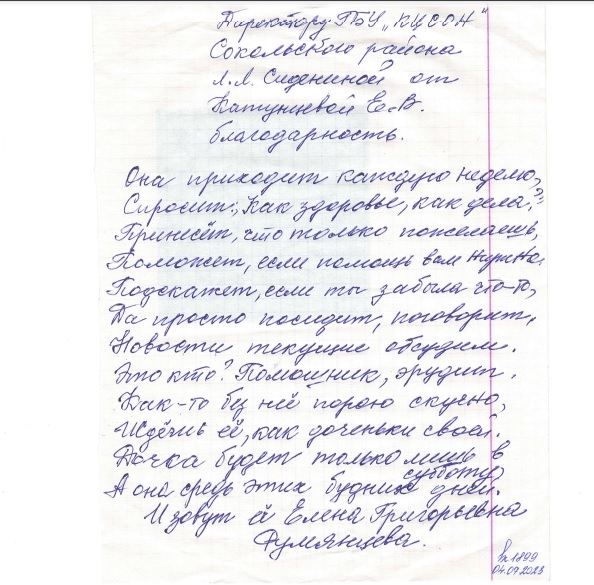 Директору ГБУ „КЦСОН"
Сокольского района
Л.Л. Сидениной, от
Катунцевой Е.В.
благодарность.
Она приходит каждую неделю,
Спросит: „Как здоровье, как дела?"
Принесёт, что только пожелаешь,
Поможет, если помощь вам нужна.
Подскажет, если ты забыла что-то,
Да просто посидит, поговорит,
Новости текущие обсудим.
Это кто? Помошник, эрудит.
Как-то без неё порою скучно,
Ждёшь её, как доченьки своей.
Дочка будет только лишь в
субботу,
А она средь этих будних дней.
И зовут её Елена Григорьевна
Румянцева.
Вх 1899
04.09.2023